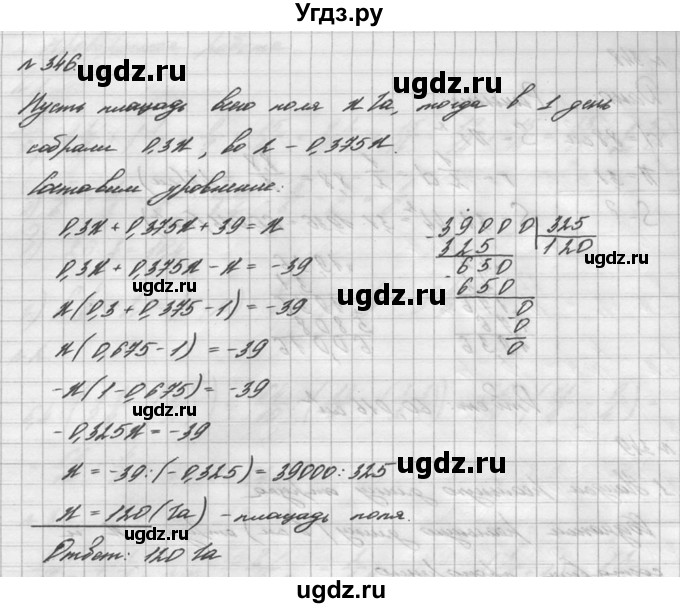 Угдз.ру
№ 346.
Пусть площадь всего поля x га, тогда в 1 день
собрали 0,3x, во 2 - 0,375x.
Составим уровнение:
0,3x + 0,375x + 39 = x
0,3x + 0,375x - x = -39
x(0,3 + 0,375 - 1) = -39
x(0,675 - 1) = -39
-x(1 - 0,675) = -39
-0,325x = -39
x = -39 : (-0,325) = 39000 : 325
x = 120 (га) - площадь поля.
Ответ: 120 га
39000 325
325 120
650
650
0
0
0
ugdz.ru
ugdz.ru
ugdz.ru
ugdz.ru
ugdz.ru
ugdz.ru
ugdz.ru
ugdz.ru
ugdz.ru
ugdz.ru
ugdz.ru
ugdz.ru